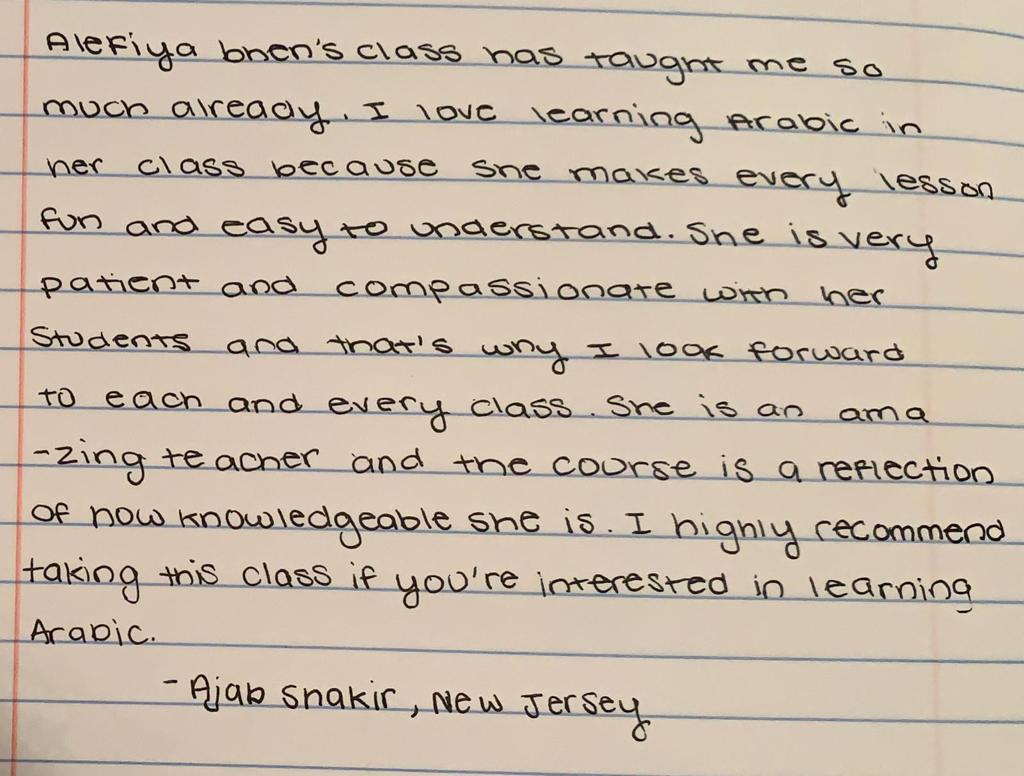 Alefiya bhen's class has taught me so
much already. I love learning Arabic in
her class because she makes every lesson
fun and easy to understand. She is very
patient and compassionate with her
Students and that's why I look forward
to each and every class. She is an ama
-zing teacher and the course is a reflection
of how knowledgeable she is. I highly recommend
taking this class if you're interested in learning
Arabic.
- Ajab Shakir, New Jersey